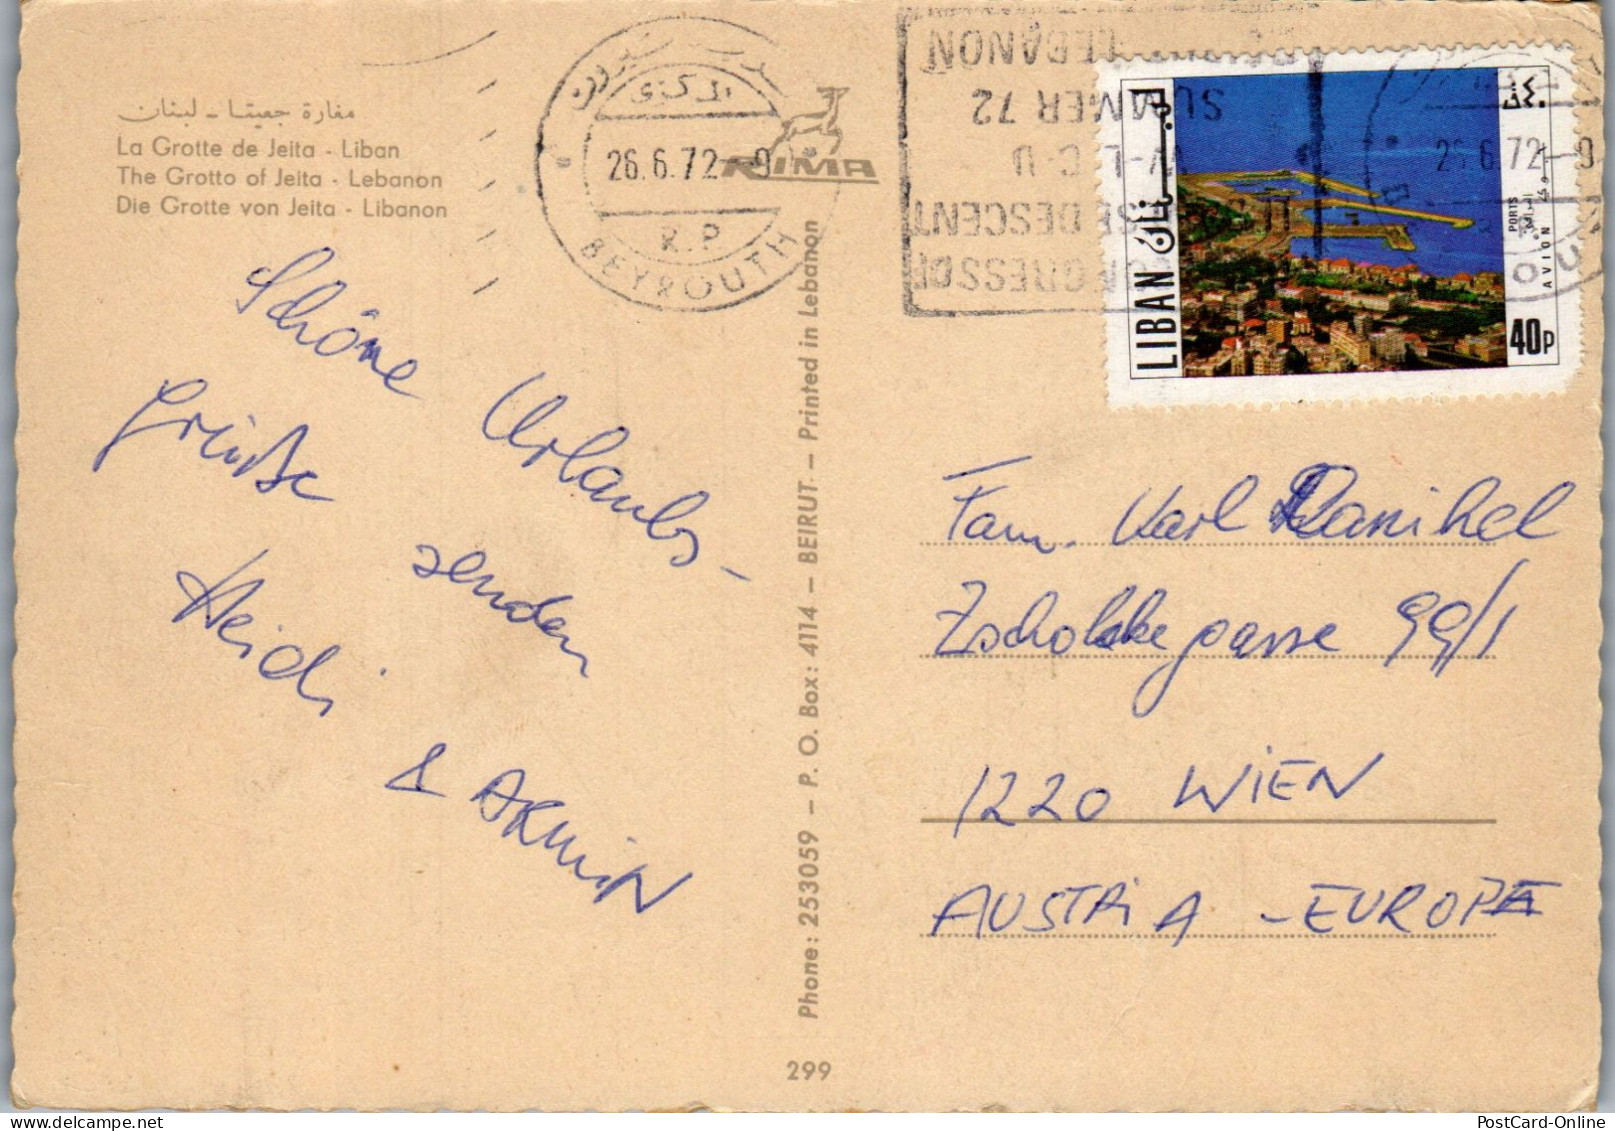 مغارة جعيتا - لبنان
La Grotte de Jeita - Liban
The Grotto of Jeita - Lebanon
Die Grotte von Jeita - Libanon
26.6.72-9
R.P
BEYROUTH
RIMA
LEBANON
SUMMER 72
W.L.C.U
DESCENT
CONGRESS OF
لبنان
LIBAN
PORTS
AVION
40P
26.6.72-9
Schöne Urlaubs-
Grüße senden
Heidi
& ARMIN
Phone: 253059 - P. O. Box: 4114 - BEIRUT - Printed in Lebanon
299
Fam. Karl Danihel
Zschokkegasse 99/1
1220 WIEN
AUSTRIA - EUROPA
PostCard-Online